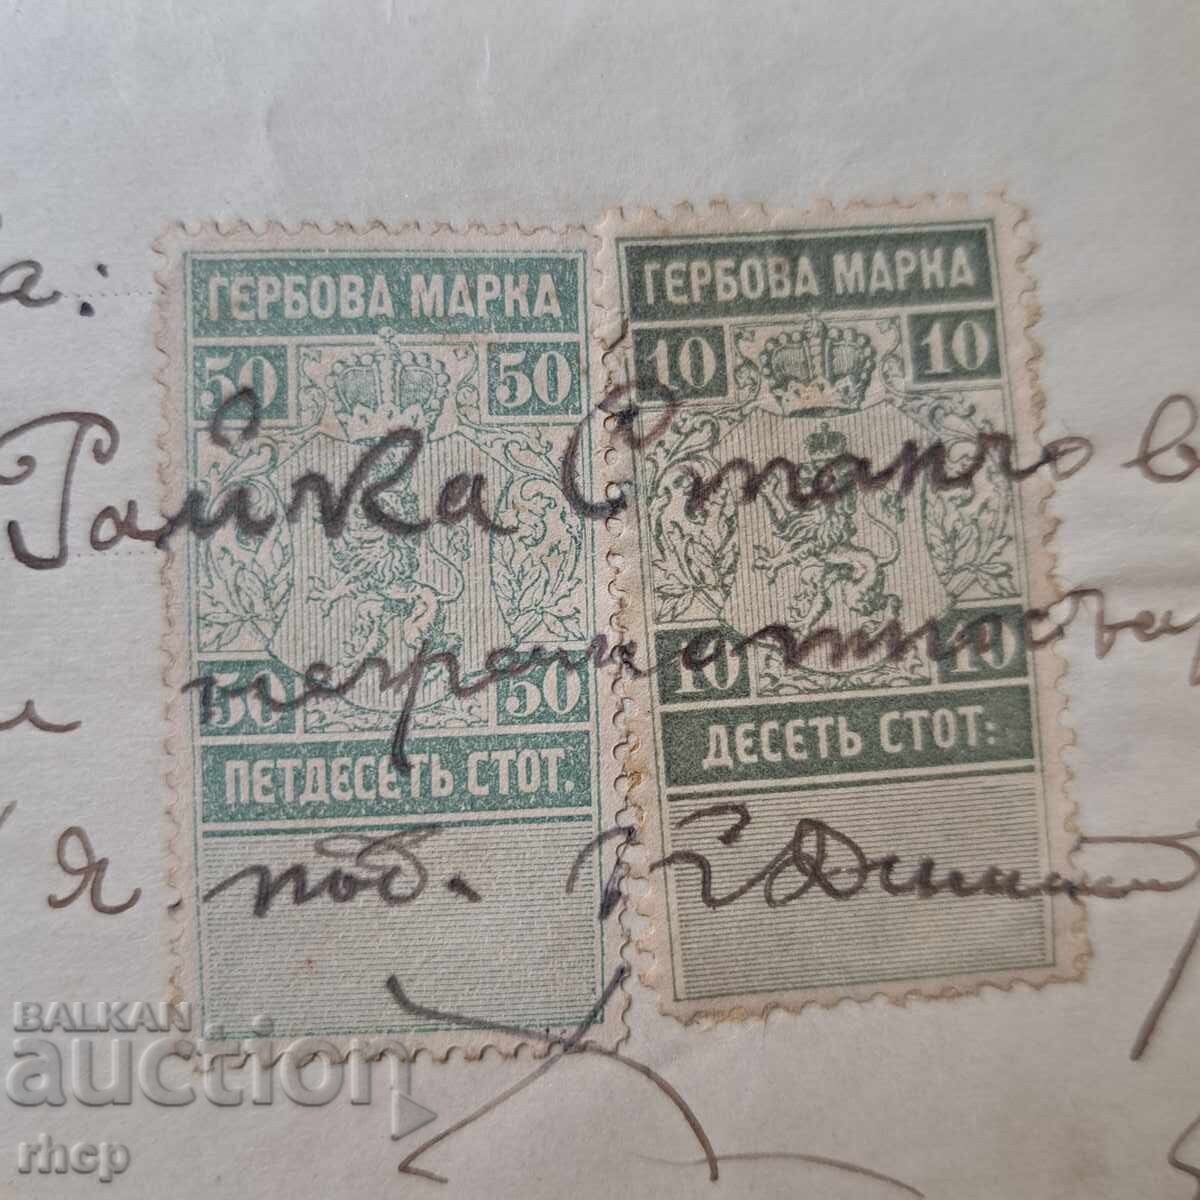 а:
ГЕРБОВА МАРКА
50 50
50 50
ПЕТДЕСЕТЬ СТОТ.
ГЕРБОВА МАРКА
10 10
10 10
ДЕСЕТЬ СТОТ:
Райка Станчов
я. под.
BALKAN
auction
rhcp